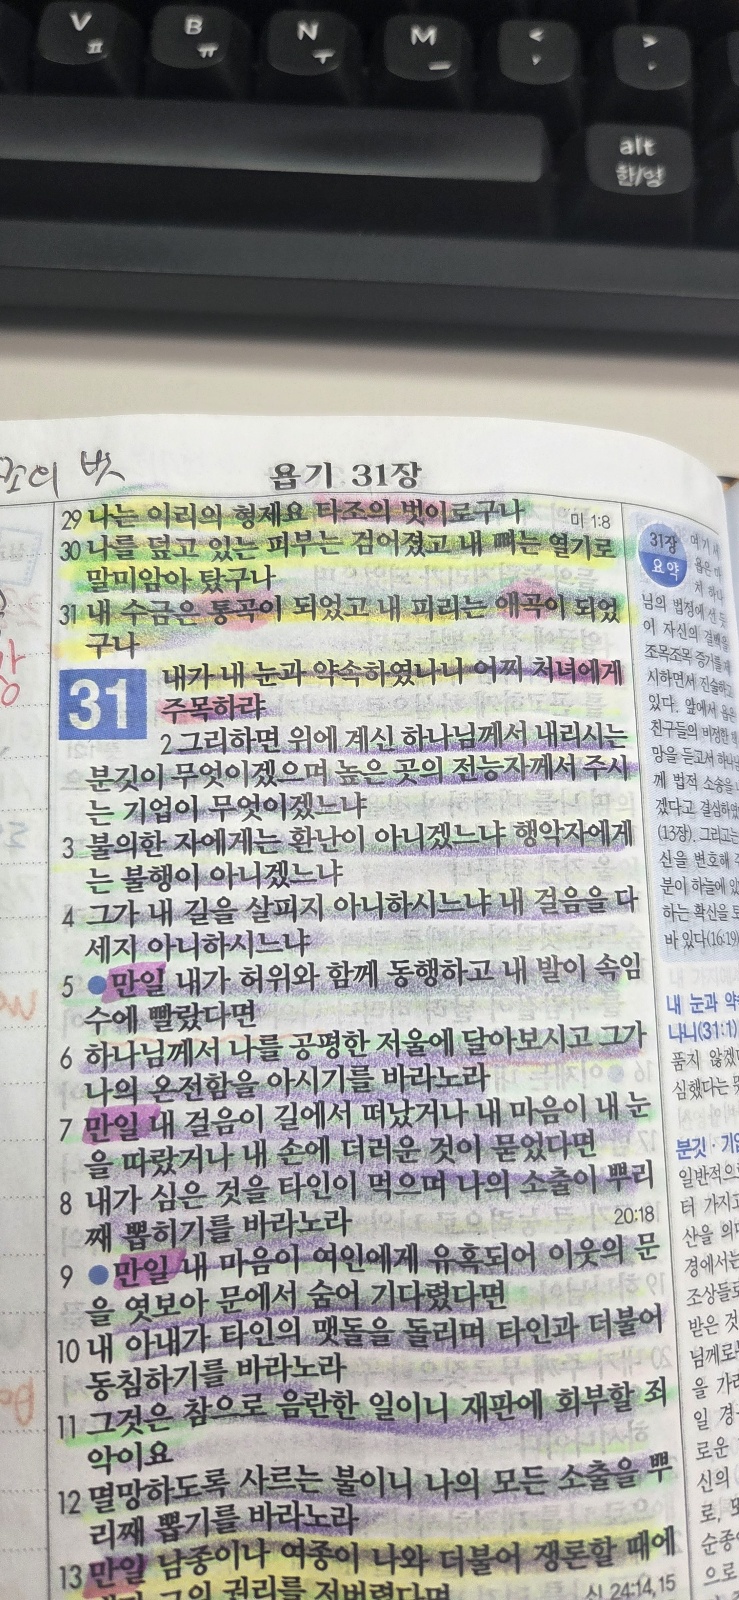 V ㅍ
B ㅠ
N ㅜ
M ㅡ
< ,
> .
alt
한/영
조의 벗
욥기 31장
29 나는 이리의 형제요 타조의 벗이로구나 미 1:8
30 나를 덮고 있는 피부는 검어졌고 내 뼈는 열기로
말미암아 탔구나
31 내 수금은 통곡이 되었고 내 피리는 애곡이 되었
구나
31 내가 내 눈과 약속하였나니 어찌 처녀에게
주목하랴
2 그리하면 위에 계신 하나님께서 내리시는
분깃이 무엇이겠으며 높은 곳의 전능자께서 주시
는 기업이 무엇이겠느냐
3 불의한 자에게는 환난이 아니겠느냐 행악자에게
는 불행이 아니겠느냐
4 그가 내 길을 살피지 아니하시느냐 내 걸음을 다
세지 아니하시느냐
5 ●만일 내가 허위와 함께 동행하고 내 발이 속임
수에 빨랐다면
6 하나님께서 나를 공평한 저울에 달아보시고 그가
나의 온전함을 아시기를 바라노라
7 만일 내 걸음이 길에서 떠났거나 내 마음이 내 눈
을 따랐거나 내 손에 더러운 것이 묻었다면
8 내가 심은 것을 타인이 먹으며 나의 소출이 뿌리
째 뽑히기를 바라노라 20:18
9 ●만일 내 마음이 여인에게 유혹되어 이웃의 문
을 엿보아 문에서 숨어 기다렸다면
10 내 아내가 타인의 맷돌을 돌리며 타인과 더불어
동침하기를 바라노라
11 그것은 참으로 음란한 일이니 재판에 회부할 죄
악이요
12 멸망하도록 사르는 불이니 나의 모든 소출을 뿌
리째 뽑기를 바라노라
13 만일 남종이나 여종이 나와 더불어 쟁론할 때에
그의 권리를 저버렸다면 신 24:14,15
31장
요약
여기서
욥은
님의 법정에 선 듯
이 자신의 결백을
조목조목 증거를 제
시하면서 진술하고
있다. 앞에서 욥은
친구들의 비정한
망을 듣고서 하나님
께 법적 소송을
겠다고 결심하였
(13장). 그리고는
신을 변호해
분이 하늘에 있
하는 확신을
바 있다(16:19)
내 눈과 약
나니(31:1)
품지 않겠
심했다는
분깃·기업
일반적으로
터 가지고
산을 의미
경에서는
조상들로
받은 것
님께로
을 가리
일 경
로운
신의
로, 또
순종
으로